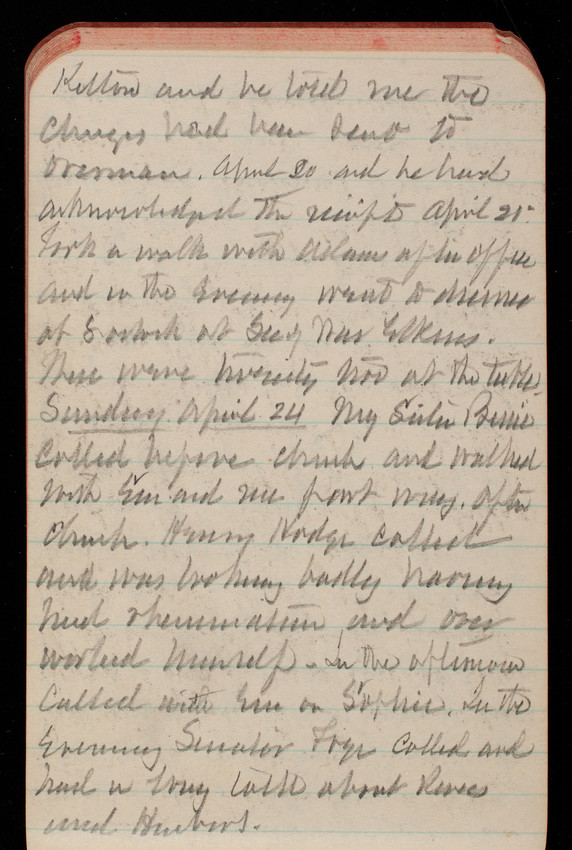 Kelton and he told me the
charges had been send to
Overman. April 20 and he had
acknowledged the receipt April 21.
Took a walk with Adams after office
and in the evening went to dinner
at 8 o'clock at Secy War Elkins.
There were twenty two at the table.
Sunday April 24 My Sister Bessie
called before church and walked
with Em and me part way. After
church. Henry Hodge called
and was looking badly having
had rheumatism and over
worked himself. In the afternoon
called with Em on Sophie. In the
evening Senator Frye called and
had a long talk about Rivers
and Harbors.